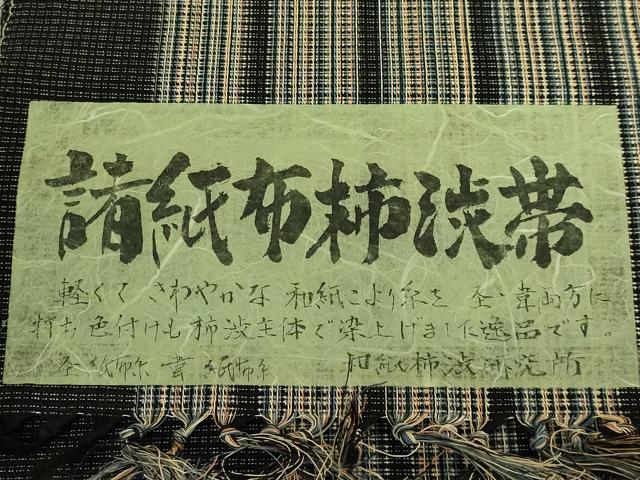 諸紙布柿渋帯
軽くてさわやかな 和紙こより糸を 圣・韋両方に
打ち 色付けも 柿渋主体で染上げました逸品です。
圣 紙布糸 韋 紙布糸 和紙柿渋研究所